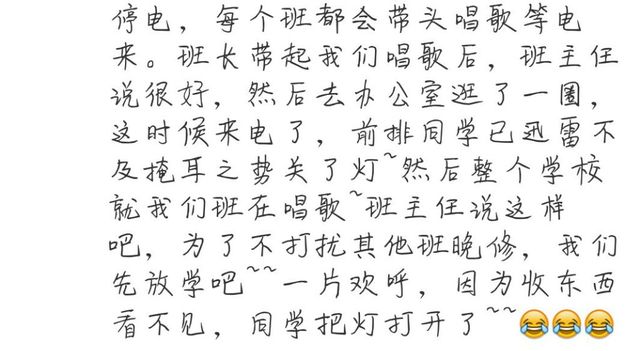 停电，每个班都会带头唱歌等电
来。班长带起我们唱歌后，班主任
说很好，然后去办公室逛了一圈，
这时候来电了，前排同学已迅雷不
及掩耳之势关了灯~然后整个学校
就我们班在唱歌~班主任说这样
吧，为了不打扰其他班晚修，我们
先放学吧~~一片欢呼，因为收东西
看不见，同学把灯打开了~~😂😂😂